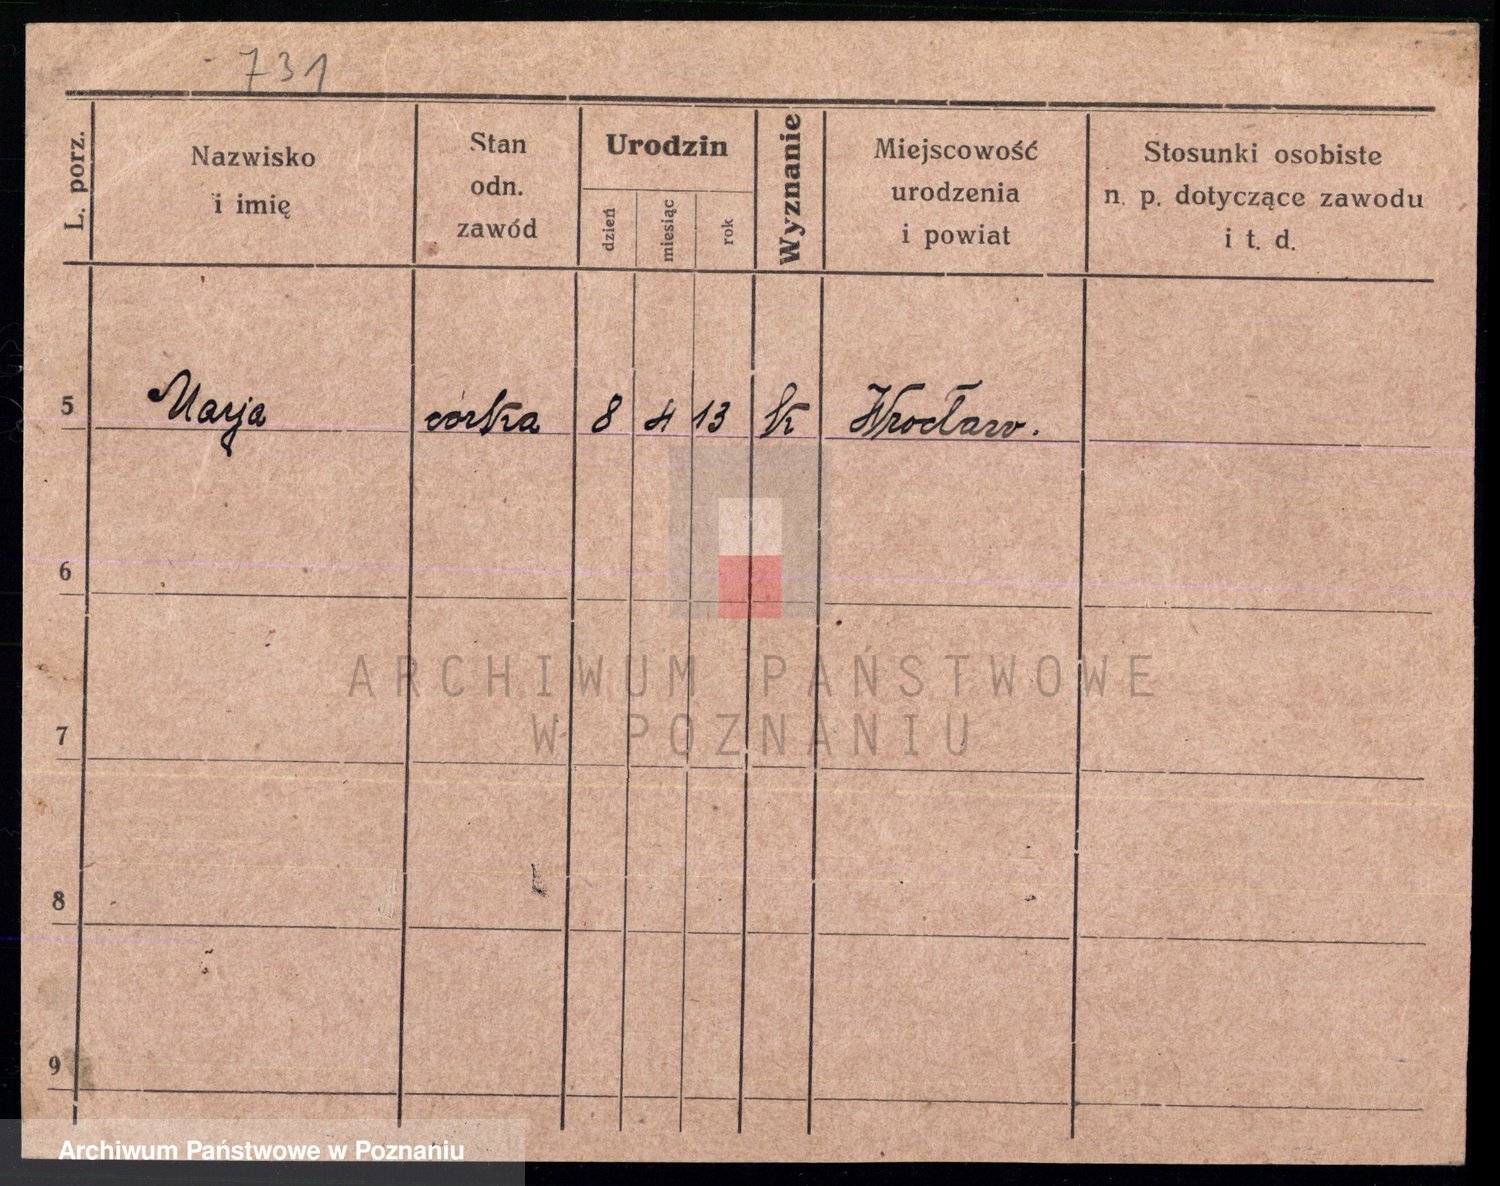 731
L. porz.
Nazwisko
i imię
Stan
odn.
zawód
Urodzin
dzień
miesiąc
rok
Wyznanie
Miejscowość
urodzenia
i powiat
Stosunki osobiste
n. p. dotyczące zawodu
i t. d.
5 Marja córka 8 4 13 k Wrocław.
6
7
8
9
ARCHIWUM PAŃSTWOWE
W POZNANIU
Archiwum Państwowe w Poznaniu